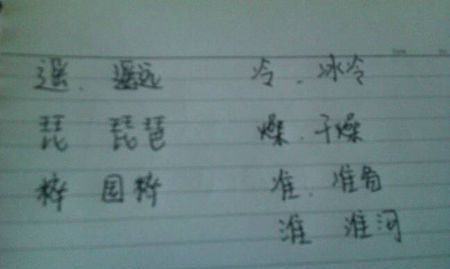 遥、遥远 冷、冰冷
琵 琵琶 燥、干燥
粹 国粹 准、准备
淮 淮河